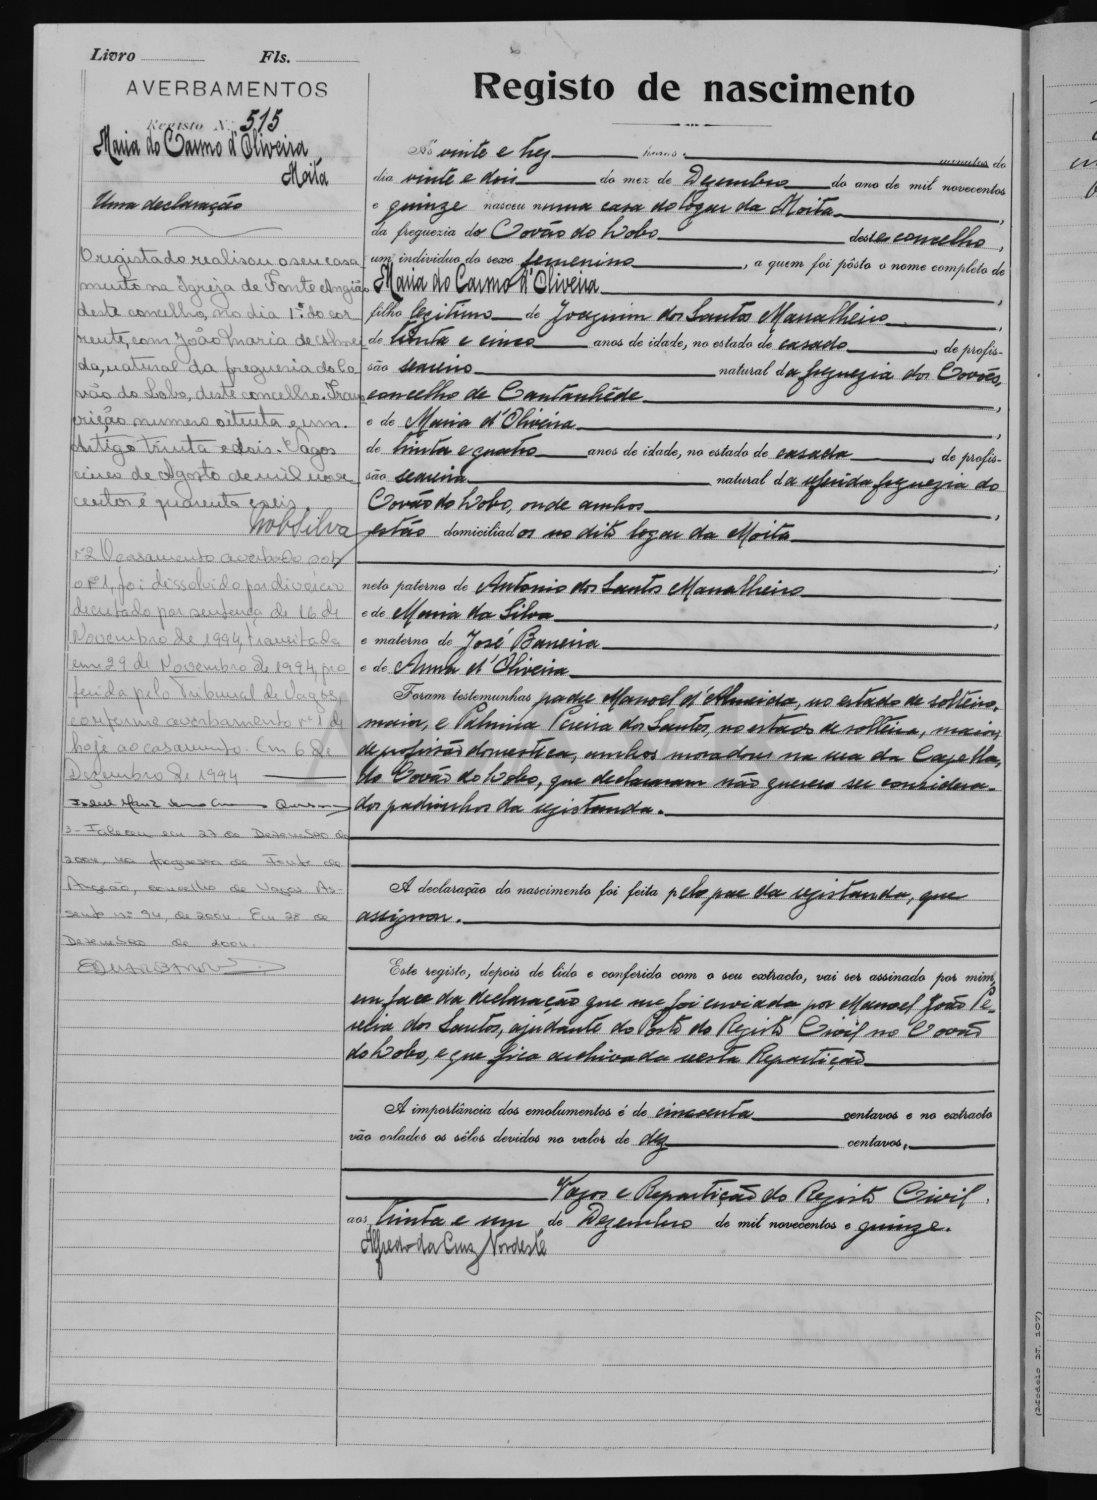 Livro Fls.
AVERBAMENTOS
Registo N.º 515
Maria do Carmo d'Oliveira
Moita
Uma declaração
O registado realisou o seu casa-
mento na Igreja de Fonte Angião
deste concelho, no dia 1º do cor-
rente, com João Maria de Almei-
da, natural da freguesia do Co-
vão do Lobo, deste concelho. Trans-
crição numero oitenta e um.
Artigo trinta e dois. Vagos
cinco de Agosto de mil nove-
centos e quarenta e seis
Silva
nº 2 O casamento averbado sob
o nº 1, foi dissolvido por divorcio
decretado por sentença de 16 de
Novembro de 1994, transitada
em 29 de Novembro de 1994, pro
ferida pelo Tribunal de Vagos,
conforme averbamento nº 1 de
hoje ao casamento. Em 6 de
Dezembro de 1994
3- Faleceu em 27 de Dezembro de
2004, na freguesia de Fonte de
Angeão, concelho de Vagos. As-
sento nº 94, de 2004. Em 28 de
Dezembro de 2004.
Registo de nascimento
Ás vinte e trez horas minutos do
dia vinte e dois do mez de Dezembro do ano de mil novecentos
e quinze nasceu numa casa do logar da Moita,
da freguezia do Covão do Lobo deste concelho,
um individuo do sexo femenino, a quem foi pôsto o nome completo de
Maria do Carmo d'Oliveira,
filho legitimo de Joaquim dos Santos Marralheiro,
de trinta e cinco anos de idade, no estado de casado, de profis-
são seareiro natural da freguezia dos Covões,
concelho de Cantanhêde,
e de Maria d'Oliveira,
de trinta e quatro anos de idade, no estado de casada, de profis-
são seareira natural da referida freguezia do
Covão do Lobo, onde ambos,
estão domiciliados no dito logar da Moita
;
neto paterno de Antonio dos Santos Marralheiro
e de Maria da Silva,
e materno de José Barreira
e de Anna d'Oliveira
Foram testemunhas padre Manoel d'Almeida, no estado de solteiro,
maior, e Palmira Pereira dos Santos, no estado de solteira, maior,
de profissão domestica, ambos moradores na rua da Capella,
do Covão do Lobo, que declararam não querere ser considera-
dos padrinhos da registanda.
A declaração do nascimento foi feita pelo pae da registanda, que
assignou.
Este registo, depois de lido e conferido com o seu extracto, vai ser assinado por mim,
em face da declaração que me foi enviada por Manoel João Pe-
reira dos Santos, ajudante do Posto do Registo Civil no Covão
do Lobo, e que fica archivada nesta Repartição
A importância dos emolumentos é de cincoenta centavos e no extracto
vão colados os sêlos devidos no valor de dez centavos,
Vagos e Repartição do Registo Civil,
aos trinta e um de Dezembro de mil novecentos e quinze.
Alfredo da Cruz Nordeste